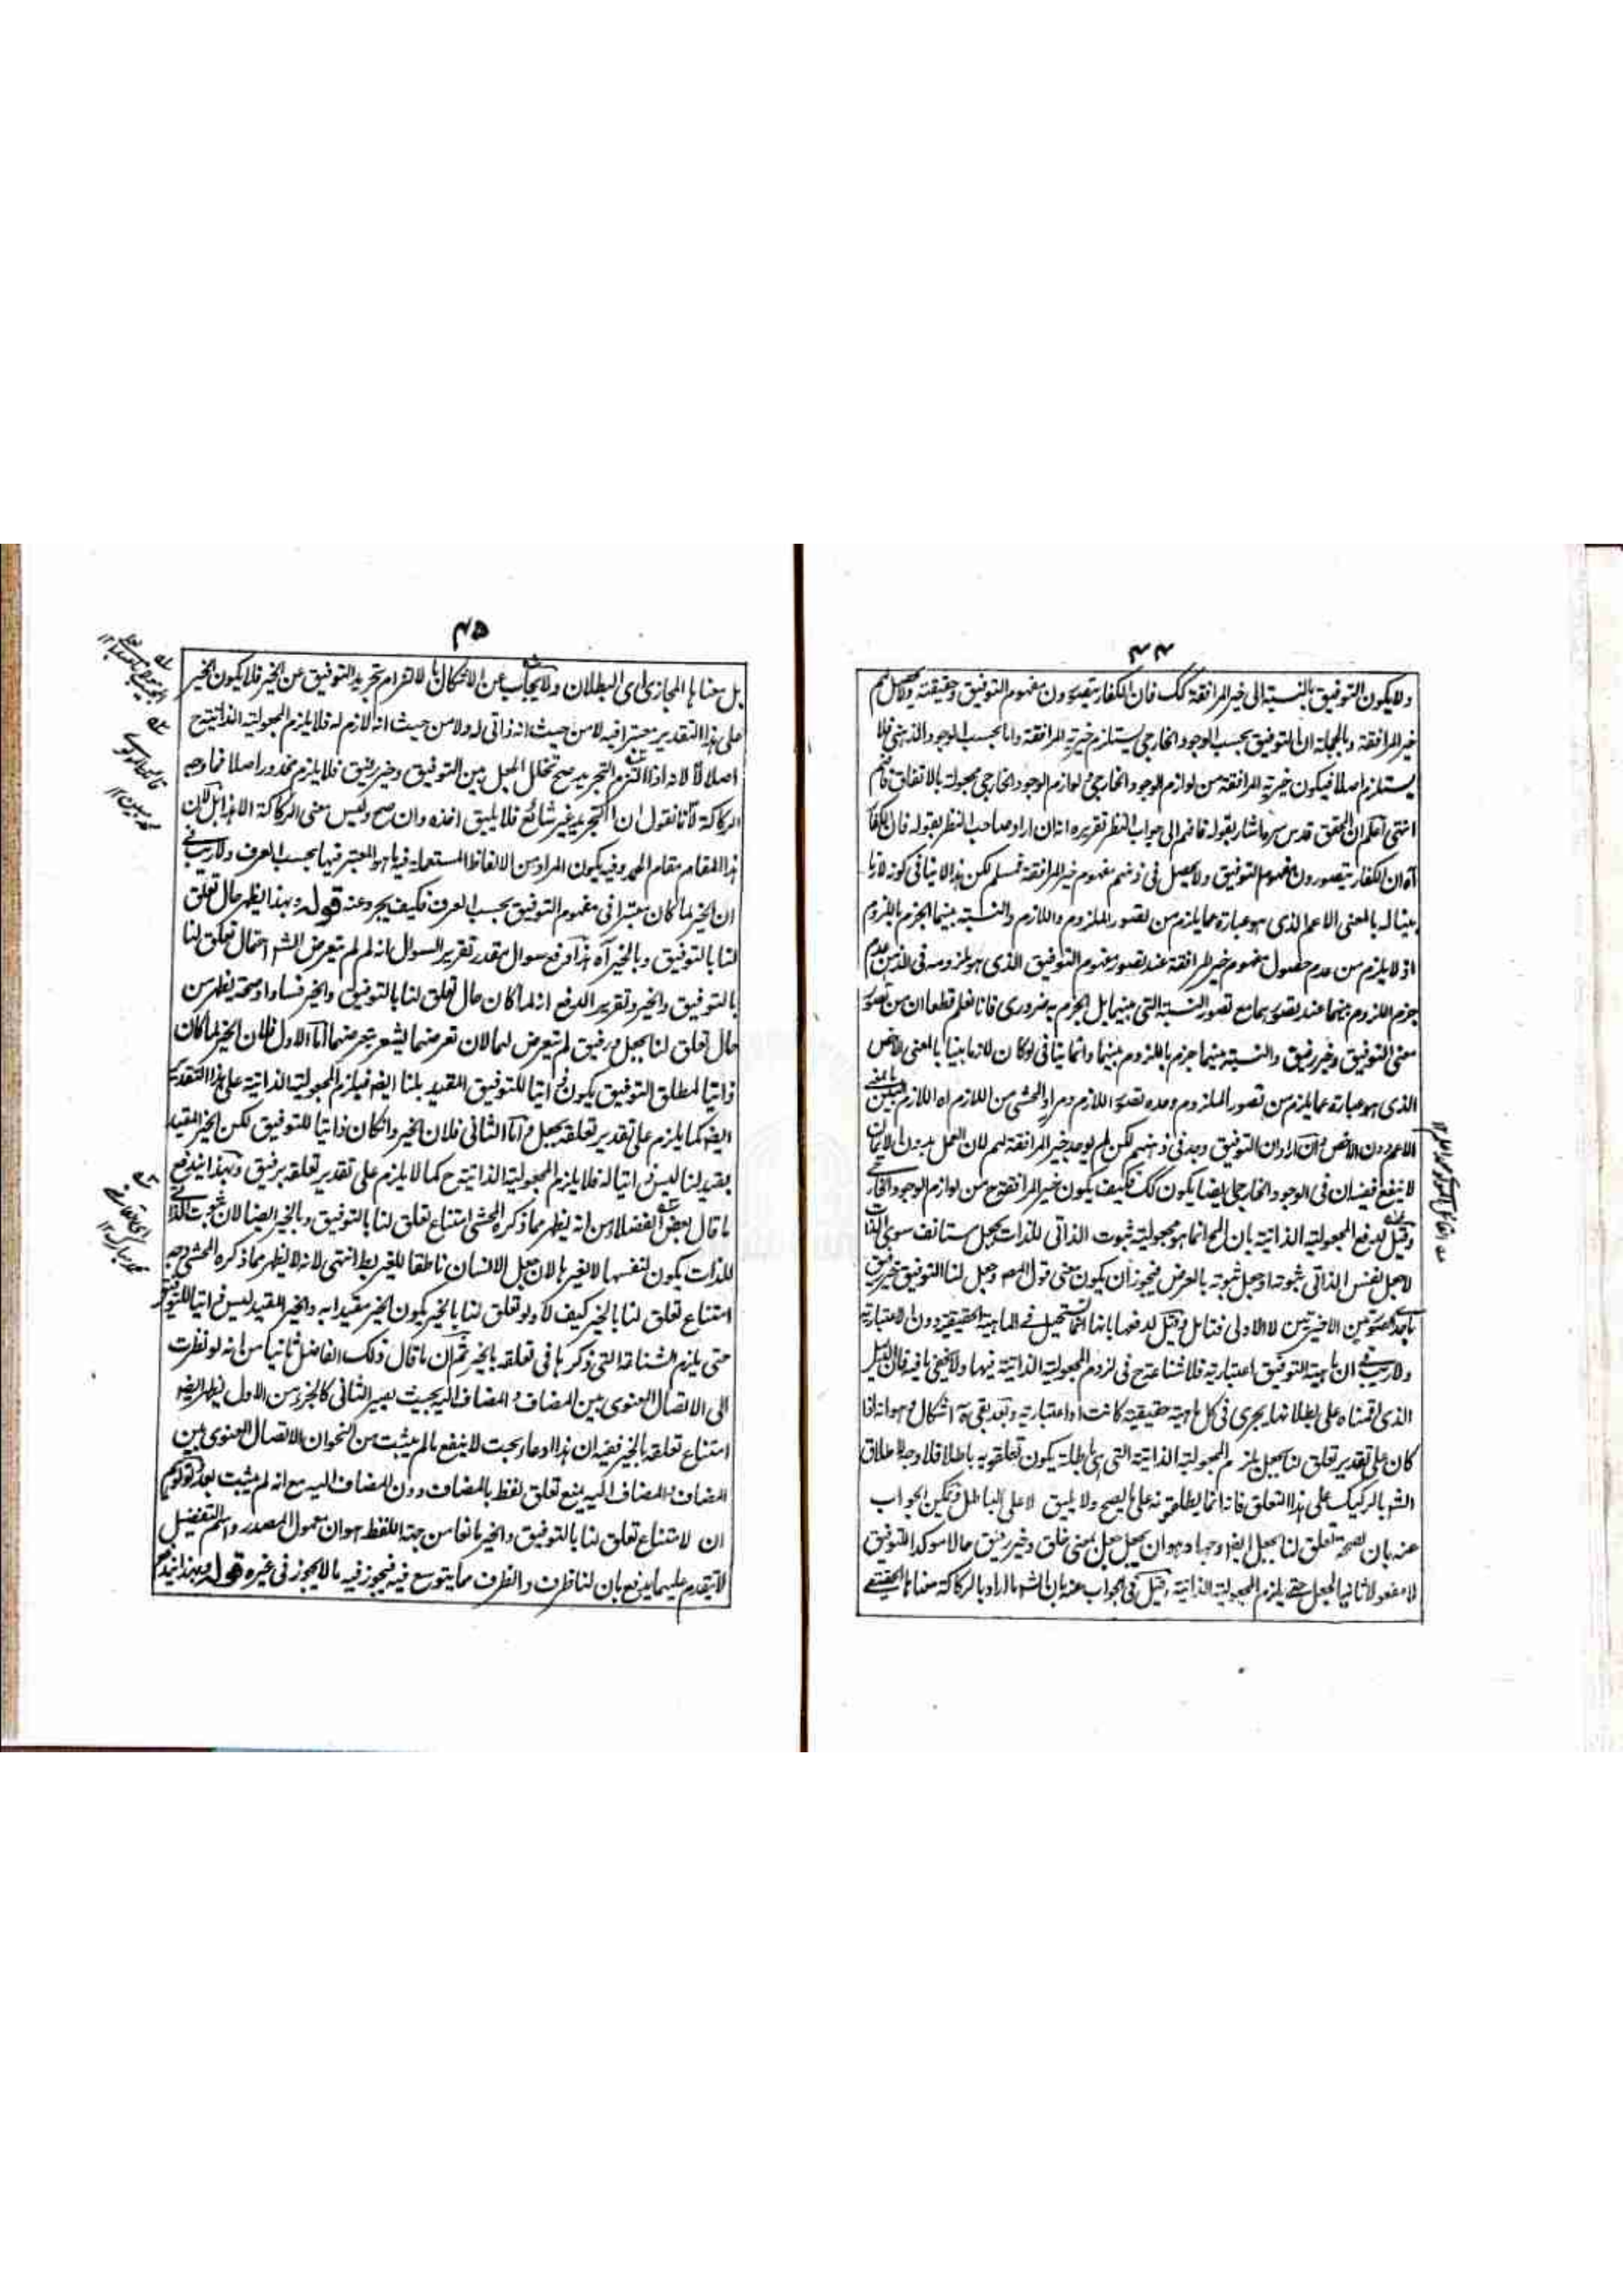 ۴۴
ولا يكون التوفيق بالنسبة الى خير المرافقة كك فان الكفار يتصورون مفهوم التوفيق وحقيقته ولا يحصل لهم
خير المرافقة وبالجملة ان التوفيق بحسب الوجود الخارجي يستلزم خيرية المرافقة واما بحسب الوجود الذهني فلا
يستلزم اصلا فيكون خيرية المرافقة من لوازم الوجود الخارجي ولوازم الوجود الخارجي مجعولة بالاتفاق فافهم
انتهى اعلم ان المحقق قدس سره اشار بقوله فافهم الى جواب النظر تقريره انه ان اراد صاحب النظر بقوله فان الكفار
آه ان الكفار يتصورون مفهوم التوفيق ولا يحصل في ذهنهم مفهوم خير المرافقة فمسلم لكن هذا لا ينافي كونه لازما
بينا له بالمعنى الاعم الذى هو عبارة عما يلزم من تصور الملزوم واللازم والنسبة بينهما الجزم باللزوم
اذ لا يلزم من عدم حصول مفهوم خير المرافقة عند تصور مفهوم التوفيق الذى هو ملزومه فى الذهن عدم
جزم اللزوم بينهما عند تصورهما مع تصور النسبة التى بينهما بل الجزم به ضرورى فانا نعلم قطعا ان من تصور
معنى التوفيق وخير رفيق والنسبة بينهما جزم باللزوم بينهما وانما ينافى لو كان لازما بينا بالمعنى الاخص
الذى هو عبارة عما يلزم من تصور الملزوم وحده تصور اللازم ومراد المحشى من اللازم اه اللازم البين بالمعنى
الاعم دون الاخص وان اراد ان التوفيق وجد فى ذهنهم لكن لم يوجد خير المرافقة لهم لان العمل بدون الايمان
لا ينفع فيضان فى الوجود الخارجى ايضا يكون كك فكيف يكون خير المرافقة ح من لوازم الوجود الخارجي
وقيل لدفع المجعولية الذاتية بان المح انما هو مجعولية ثبوت الذاتى للذات بجعل مستانف سوى الذات
لا جعل نفس الذاتى ثبوته او جعل ثبوته بالعرض فيجوز ان يكون معنى قول المص وجعل لنا التوفيق خير رفيق
باحد الصورتين الاخيرتين لا الاولى فتامل وقيل لدفعها بانها انما تستحيل فى الماهية الحقيقية دون الاعتبارية
ولا ريب فى ان ماهية التوفيق اعتبارية فلا شناعة ح فى لزوم المجعولية الذاتية فيها ولا يخفى ما فيه فان الدليل
الذى اقمناه على بطلانها يجرى فى كل ماهية حقيقية كانت او اعتبارية وبعد بقى ههنا اشكال وهو انه اذا
كان على تقدير تعلق لنا بجعل يلزم المجعولية الذاتية التى هى باطلة يكون تعلقه به باطلا فلا وجه لاطلاق
الشر بالركيك على هذا التعلق فانه انما يطلقونه على ما يصح ولا يليق لا على الباطل ويمكن الجواب
عنه بان لصحة تعلق لنا بجعل ايضا وجها وهو ان يجعل جعل بمعنى خلق وخير رفيق حالا موكدا للتوفيق
لا مفعولا ثانيا لجعل حتى يلزم المجعولية الذاتية وقيل فى الجواب عنه بان الشر ما اراد بالركاكة معناها الحقيقى
۴۵
بل معناها المجازى اى البطلان ولا يجاب عن الاشكال بالالتزام تجريد التوفيق عن الخير فلا يكون الخير
على هذا التقدير معتبرا فيه لا من حيث انه ذاتى له ولا من حيث انه لازم له فلا يلزم المجعولية الذاتية ح
اصلا لانه اذا التزم التجريد صح تخلل الجعل بين التوفيق وخير رفيق فلا يلزم محذور اصلا فما وجه
الركاكة لانا نقول ان التجريد غير شائع فلا يليق اخذه وان صح وليس معنى الركاكة الا هذا بل لان
هذا المقام مقام الحمد وفيه يكون المراد من الالفاظ المستعملة فيها هو المعتبر فيها بحسب العرف ولا ريب فى
ان الخير لما كان معتبرا فى مفهوم التوفيق بحسب العرف فكيف يجرد عنه قوله وبهذا يظهر حال تعلق
لنا بالتوفيق وبالخير آه هذا دفع سوال مقدر تقرير السوال انه لم لم يتعرض الشر احتمال تعلق لنا
بالتوفيق والخير وتقرير الدفع انه لما كان حال تعلق لنا بالتوفيق والخير فسادا وصحة يظهر من
حال تعلق لنا بجعل ورفيق لم يتعرض لهما لان تعرضهما يشعر بتعرضهما اما الاول فلان الخير لما كان
ذاتيا لمطلق التوفيق يكون ذاتيا للتوفيق المقيد بلنا ايضا فيلزم المجعولية الذاتية على هذا التقدير
ايضا كما يلزم على تقدير تعلقه بجعل واما الثانى فلان الخير وان كان ذاتيا للتوفيق لكن الخير المقيد
بقيد لنا ليس ذاتيا له فلا يلزم المجعولية الذاتية ح كما لا يلزم على تقدير تعلقه برفيق وبهذا يندفع
ما قال بعض الفضلاء من انه يظهر مما ذكره المحشى امتناع تعلق لنا بالتوفيق وبالخير ايضا لان ثبوت الذاتى
للذات يكون لنفسها لا لغيرها لان جعل الانسان ناطقا للغير بط انتهى لانه لا يظهر مما ذكره المحشى وجه
امتناع تعلق لنا بالخير كيف لا ولو تعلق لنا بالخير يكون الخير مقيدا به والخير المقيد ليس ذاتيا للتوفيق
حتى يلزم الشناعة التى ذكرها فى تعلقه بالخير ثم ان ما قال ذلك الفاضل ثانيا من انه لو نظرت
الى الاتصال المعنوى بين المضاف والمضاف اليه بحيث يصير الثانى كالجزء من الاول ليظهر ايضا
امتناع تعلقه بالخير ففيه ان هذا ادعاء بحت لا ينفع ما لم يثبت من النحو ان الاتصال المعنوى بين
المضاف والمضاف اليه يمنع تعلق لفظ بالمضاف دون المضاف اليه مع انه لم يثبت بعد وقولهم
ان لامتناع تعلق لنا بالتوفيق والخير مانعا من جهة اللفظ هو ان معمول المصدر واسم التفضيل
لا يتقدم عليهما يدفع بان لنا ظرف والظرف مما يتوسع فيه فيجوز فيه ما لا يجوز فى غيره قوله وبهذا يندفع